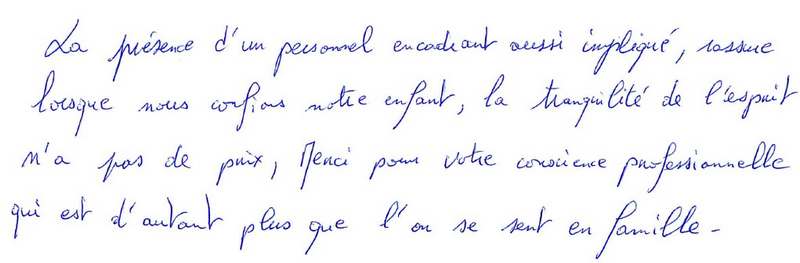 La présence d'un personnel encadrant aussi impliqué, rassure
lorsque nous confions notre enfant, la tranquilité de l'esprit
n'a pas de prix, Merci pour votre conscience professionnelle
qui est d'autant plus que l'on se sent en famille -